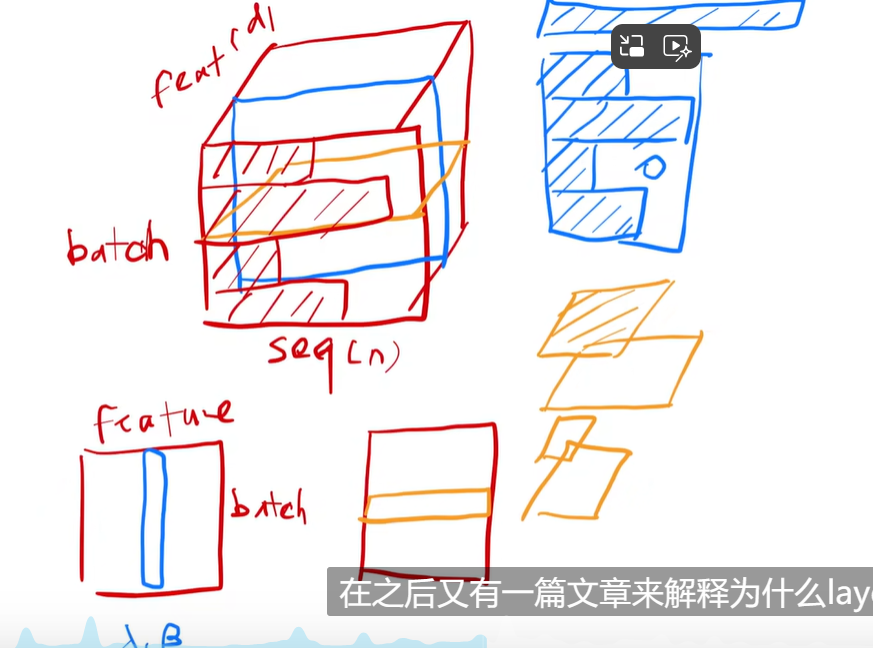 feat(d)
batch
seq(n)
feature
batch
λ, β
在之后又有一篇文章来解释为什么laye